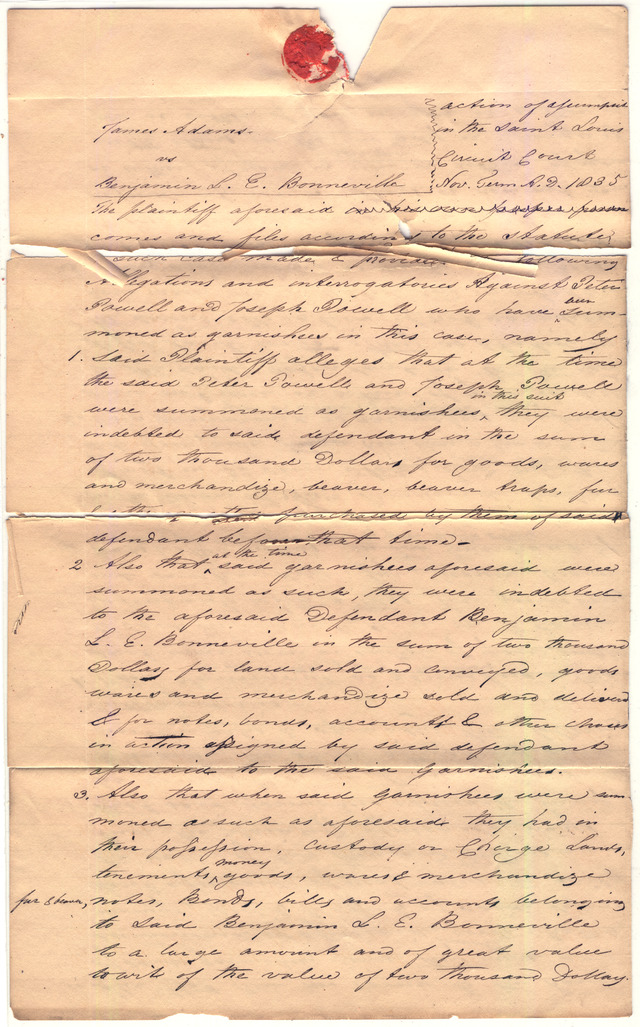 James Adams.
vs
Benjamin L. E. Bonneville
action of assumpsit
in the Saint Louis
Circuit Court
Nov. Term A.D. 1835
The plaintiff aforesaid in his own proper person
comes and files according to the Statute
such case made & provided following
Allegations and interrogatories Against Peter
Powell and Joseph Powell who have been sum-
moned as garnishees in this case, namely
1. Said Plaintiff alleges that at the time
the said Peter Powell and Joseph Powell
were summoned as garnishees in this suit, they were
indebted to said defendant in the sum
of two thousand Dollars for goods, wares
and merchandize, beaver, beaver traps, fur
purchased by them of said
defendant before that time.
2 Also that at the time said garnishees aforesaid were
summoned as such, they were indebted
to the aforesaid Defendant Benjamin
L. E. Bonneville in the sum of two thousand
Dollars for land sold and conveyed, goods
wares and merchandize sold and delivered
& for notes, bonds, accounts & other choses
in action assigned by said defendant
aforesaid to the said Garnishees.
3. Also that when said Garnishees were sum-
moned as such as aforesaid they had in
their possession, custody or Charge Lands,
tenements, money goods, wares & merchandize
fur & beaver, notes, Bonds, bills and accounts belonging
to said Benjamin L. E. Bonneville
to a large amount and of great value
to wit of the value of two thousand Dollars.